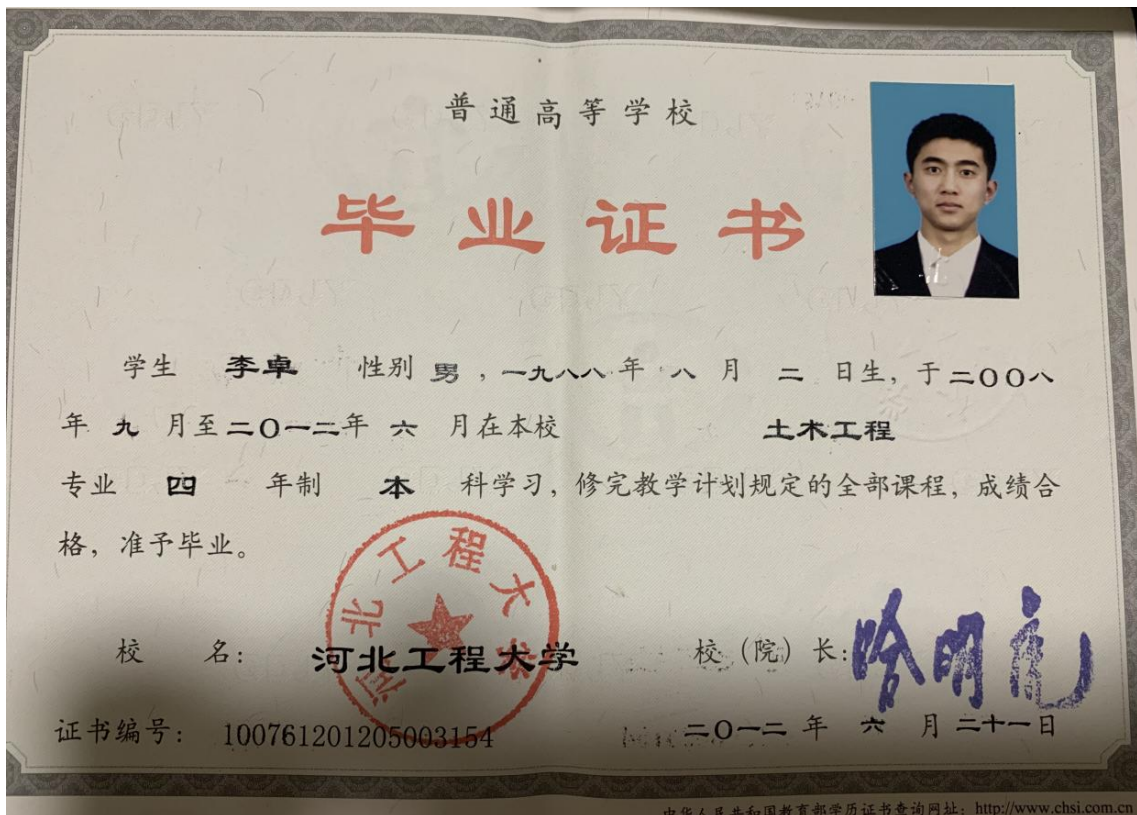 普通高等学校
毕业证书
学生 李卓 性别 男 ,一九八八 年 八 月 二 日生, 于 二〇〇八
年 九 月至 二〇一二年 六 月在本校 土木工程
专业 四 年制 本 科学习, 修完教学计划规定的全部课程, 成绩合
格, 准予毕业。
河北工程大学
校 名: 河北工程大学 校 (院) 长: 哈明虎
证书编号: 100761201205003154 二〇一二 年 六 月 二十一日
中华人民共和国教育部学历证书查询网址: http://www.chsi.com.cn